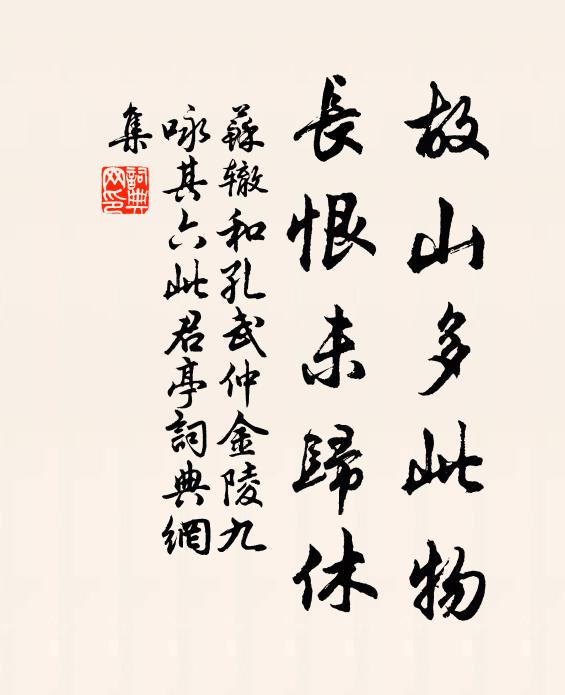 故山多此物
長恨未歸休
蘇轍和孔武仲金陵九
咏其六此君亭詞典網
集
詞典
网印